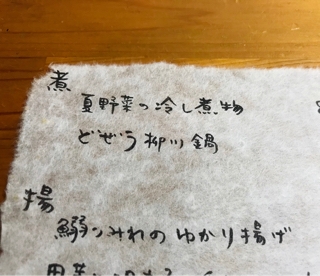 煮
夏野菜の冷し煮物
どぜう柳川鍋
揚
鰯つみれのゆかり揚げ